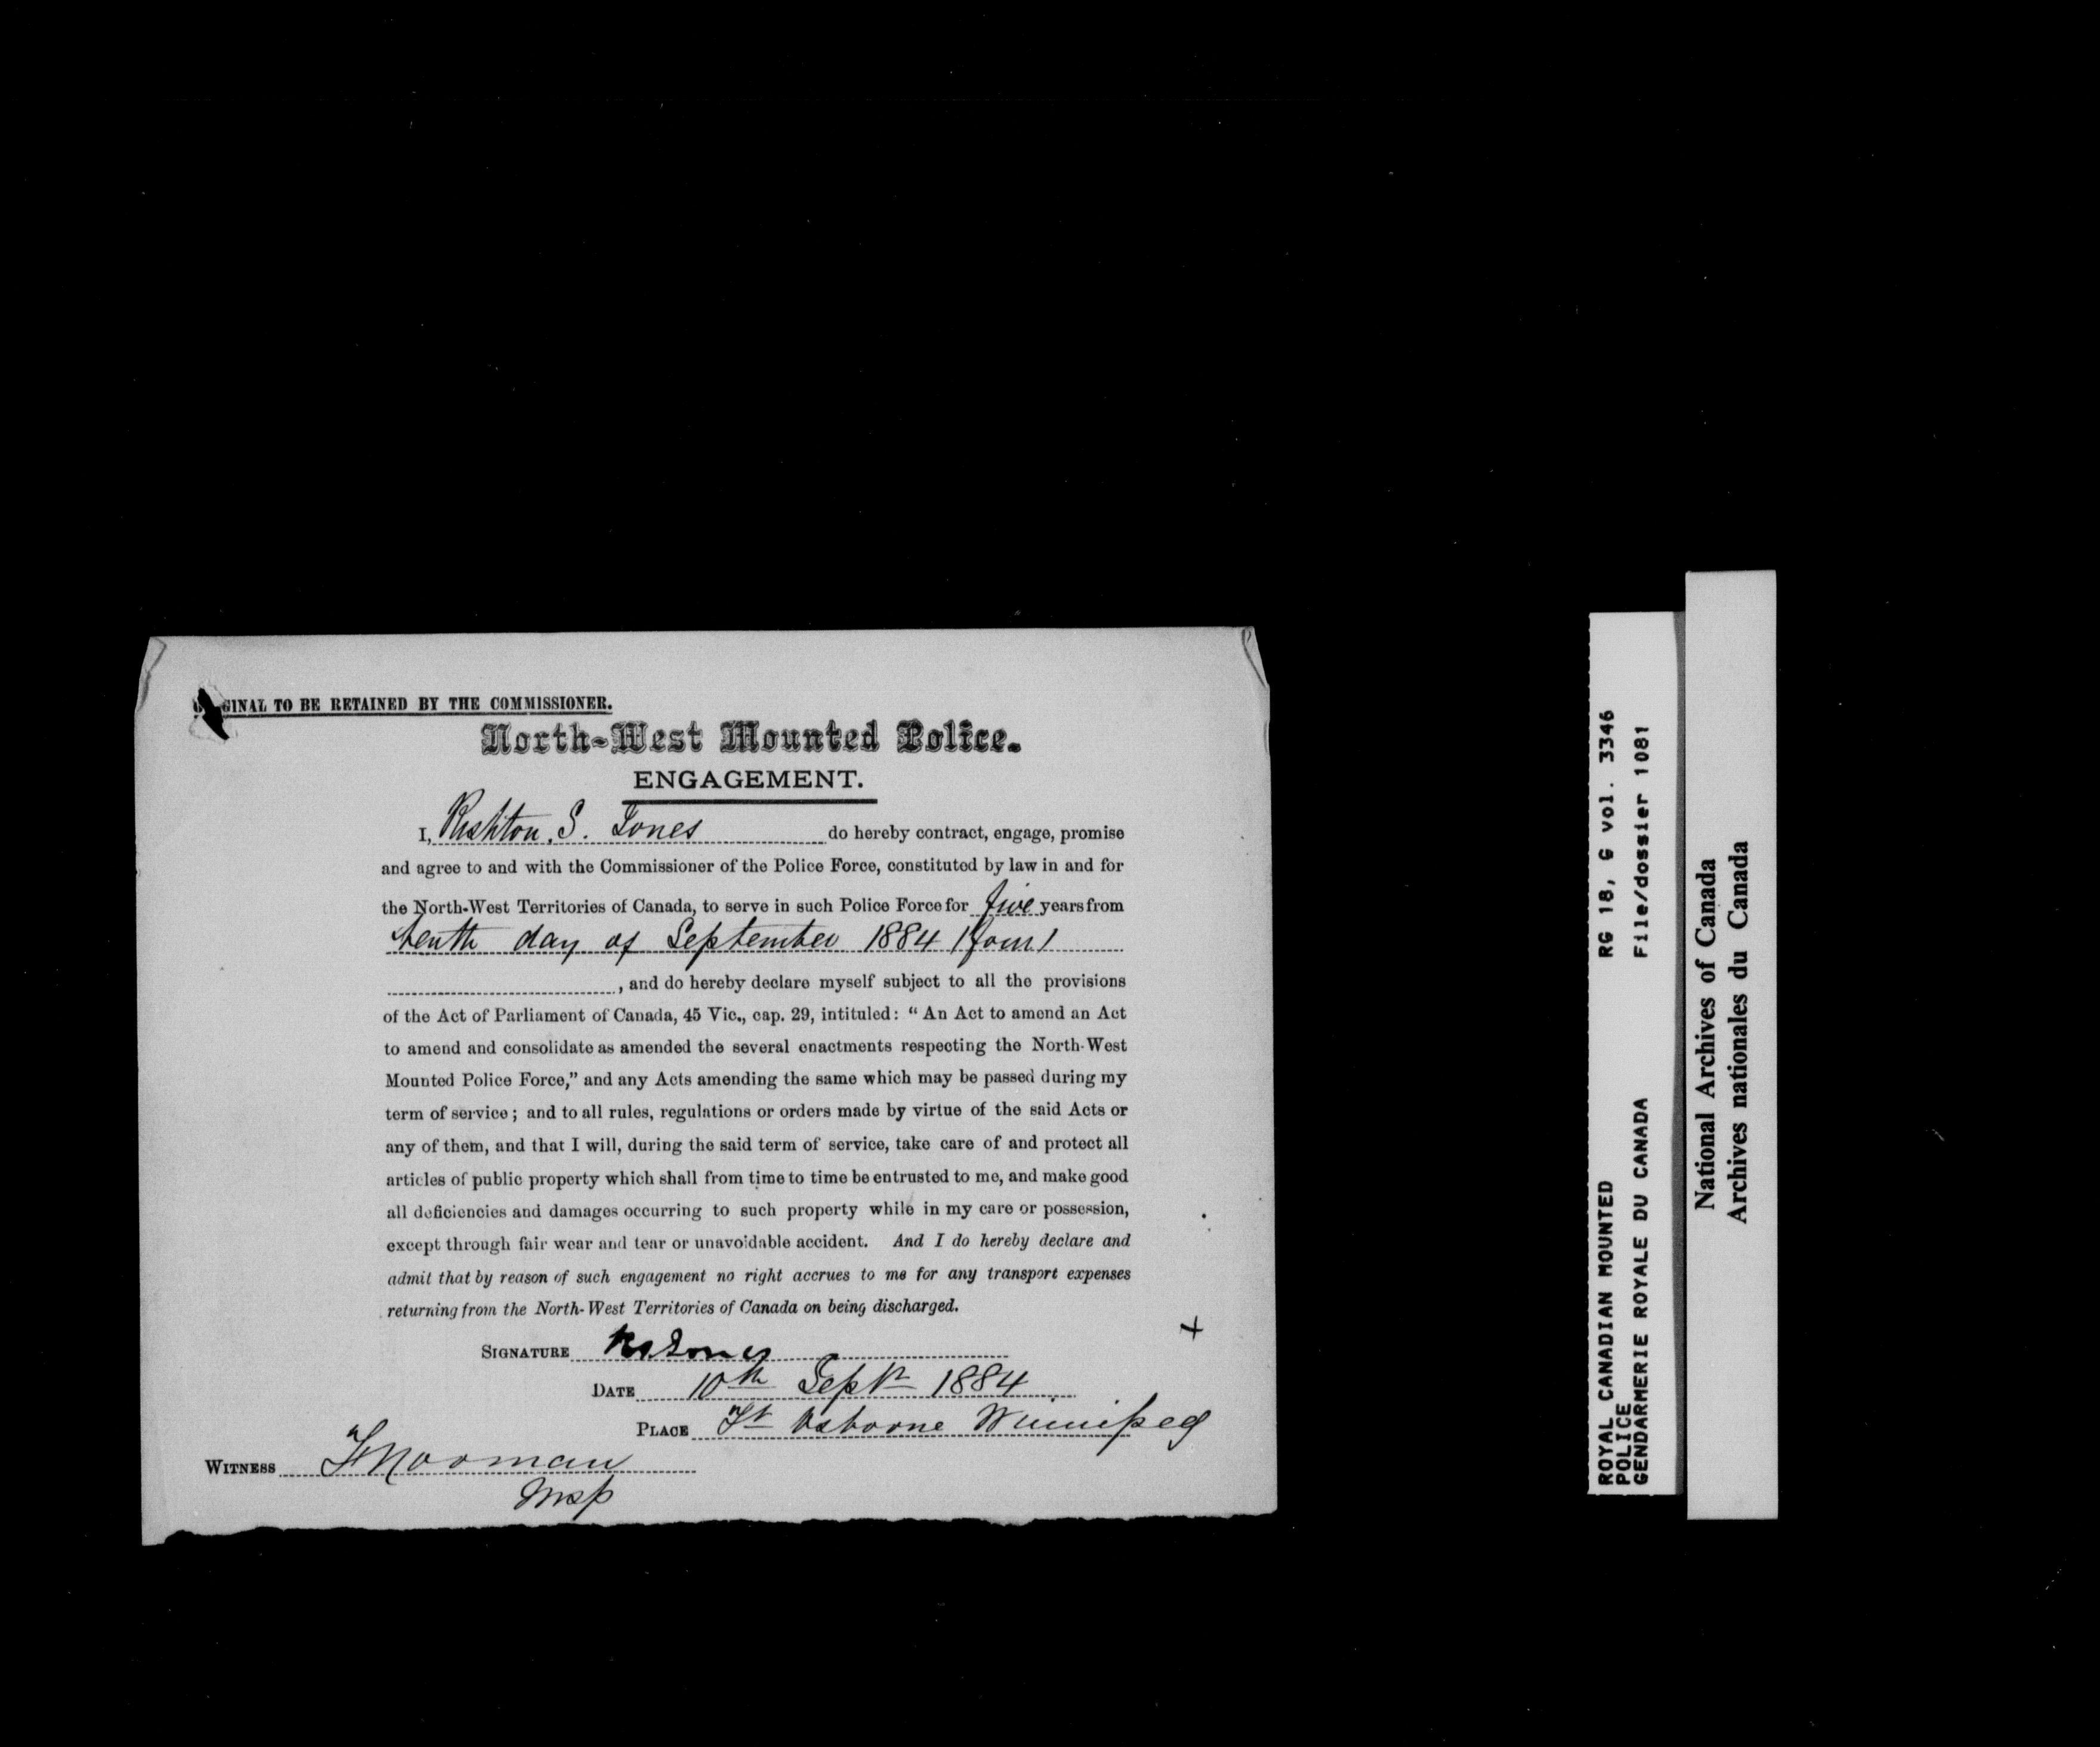 ORIGINAL TO BE RETAINED BY THE COMMISSIONER.
North-West Mounted Police.
ENGAGEMENT.
I, Rushton. S. Jones do hereby contract, engage, promise
and agree to and with the Commissioner of the Police Force, constituted by law in and for
the North-West Territories of Canada, to serve in such Police Force for five years from
tenth day of September 1884 (four)
, and do hereby declare myself subject to all the provisions
of the Act of Parliament of Canada, 45 Vic., cap. 29, intituled: “ An Act to amend an Act
to amend and consolidate as amended the several enactments respecting the North-West
Mounted Police Force,” and any Acts amending the same which may be passed during my
term of service ; and to all rules, regulations or orders made by virtue of the said Acts or
any of them, and that I will, during the said term of service, take care of and protect all
articles of public property which shall from time to time be entrusted to me, and make good
all deficiencies and damages occurring to such property while in my care or possession,
except through fair wear and tear or unavoidable accident. And I do hereby declare and
admit that by reason of such engagement no right accrues to me for any transport expenses
returning from the North-West Territories of Canada on being discharged.
SIGNATURE RS Jones
DATE 10th Sept 1884
PLACE Ft Osborne Winnipeg
WITNESS F Norman
Insp
ROYAL CANADIAN MOUNTED RG 18, G vol. 3346
POLICE
GENDARMERIE ROYALE DU CANADA File/dossier 1081
National Archives of Canada
Archives nationales du Canada